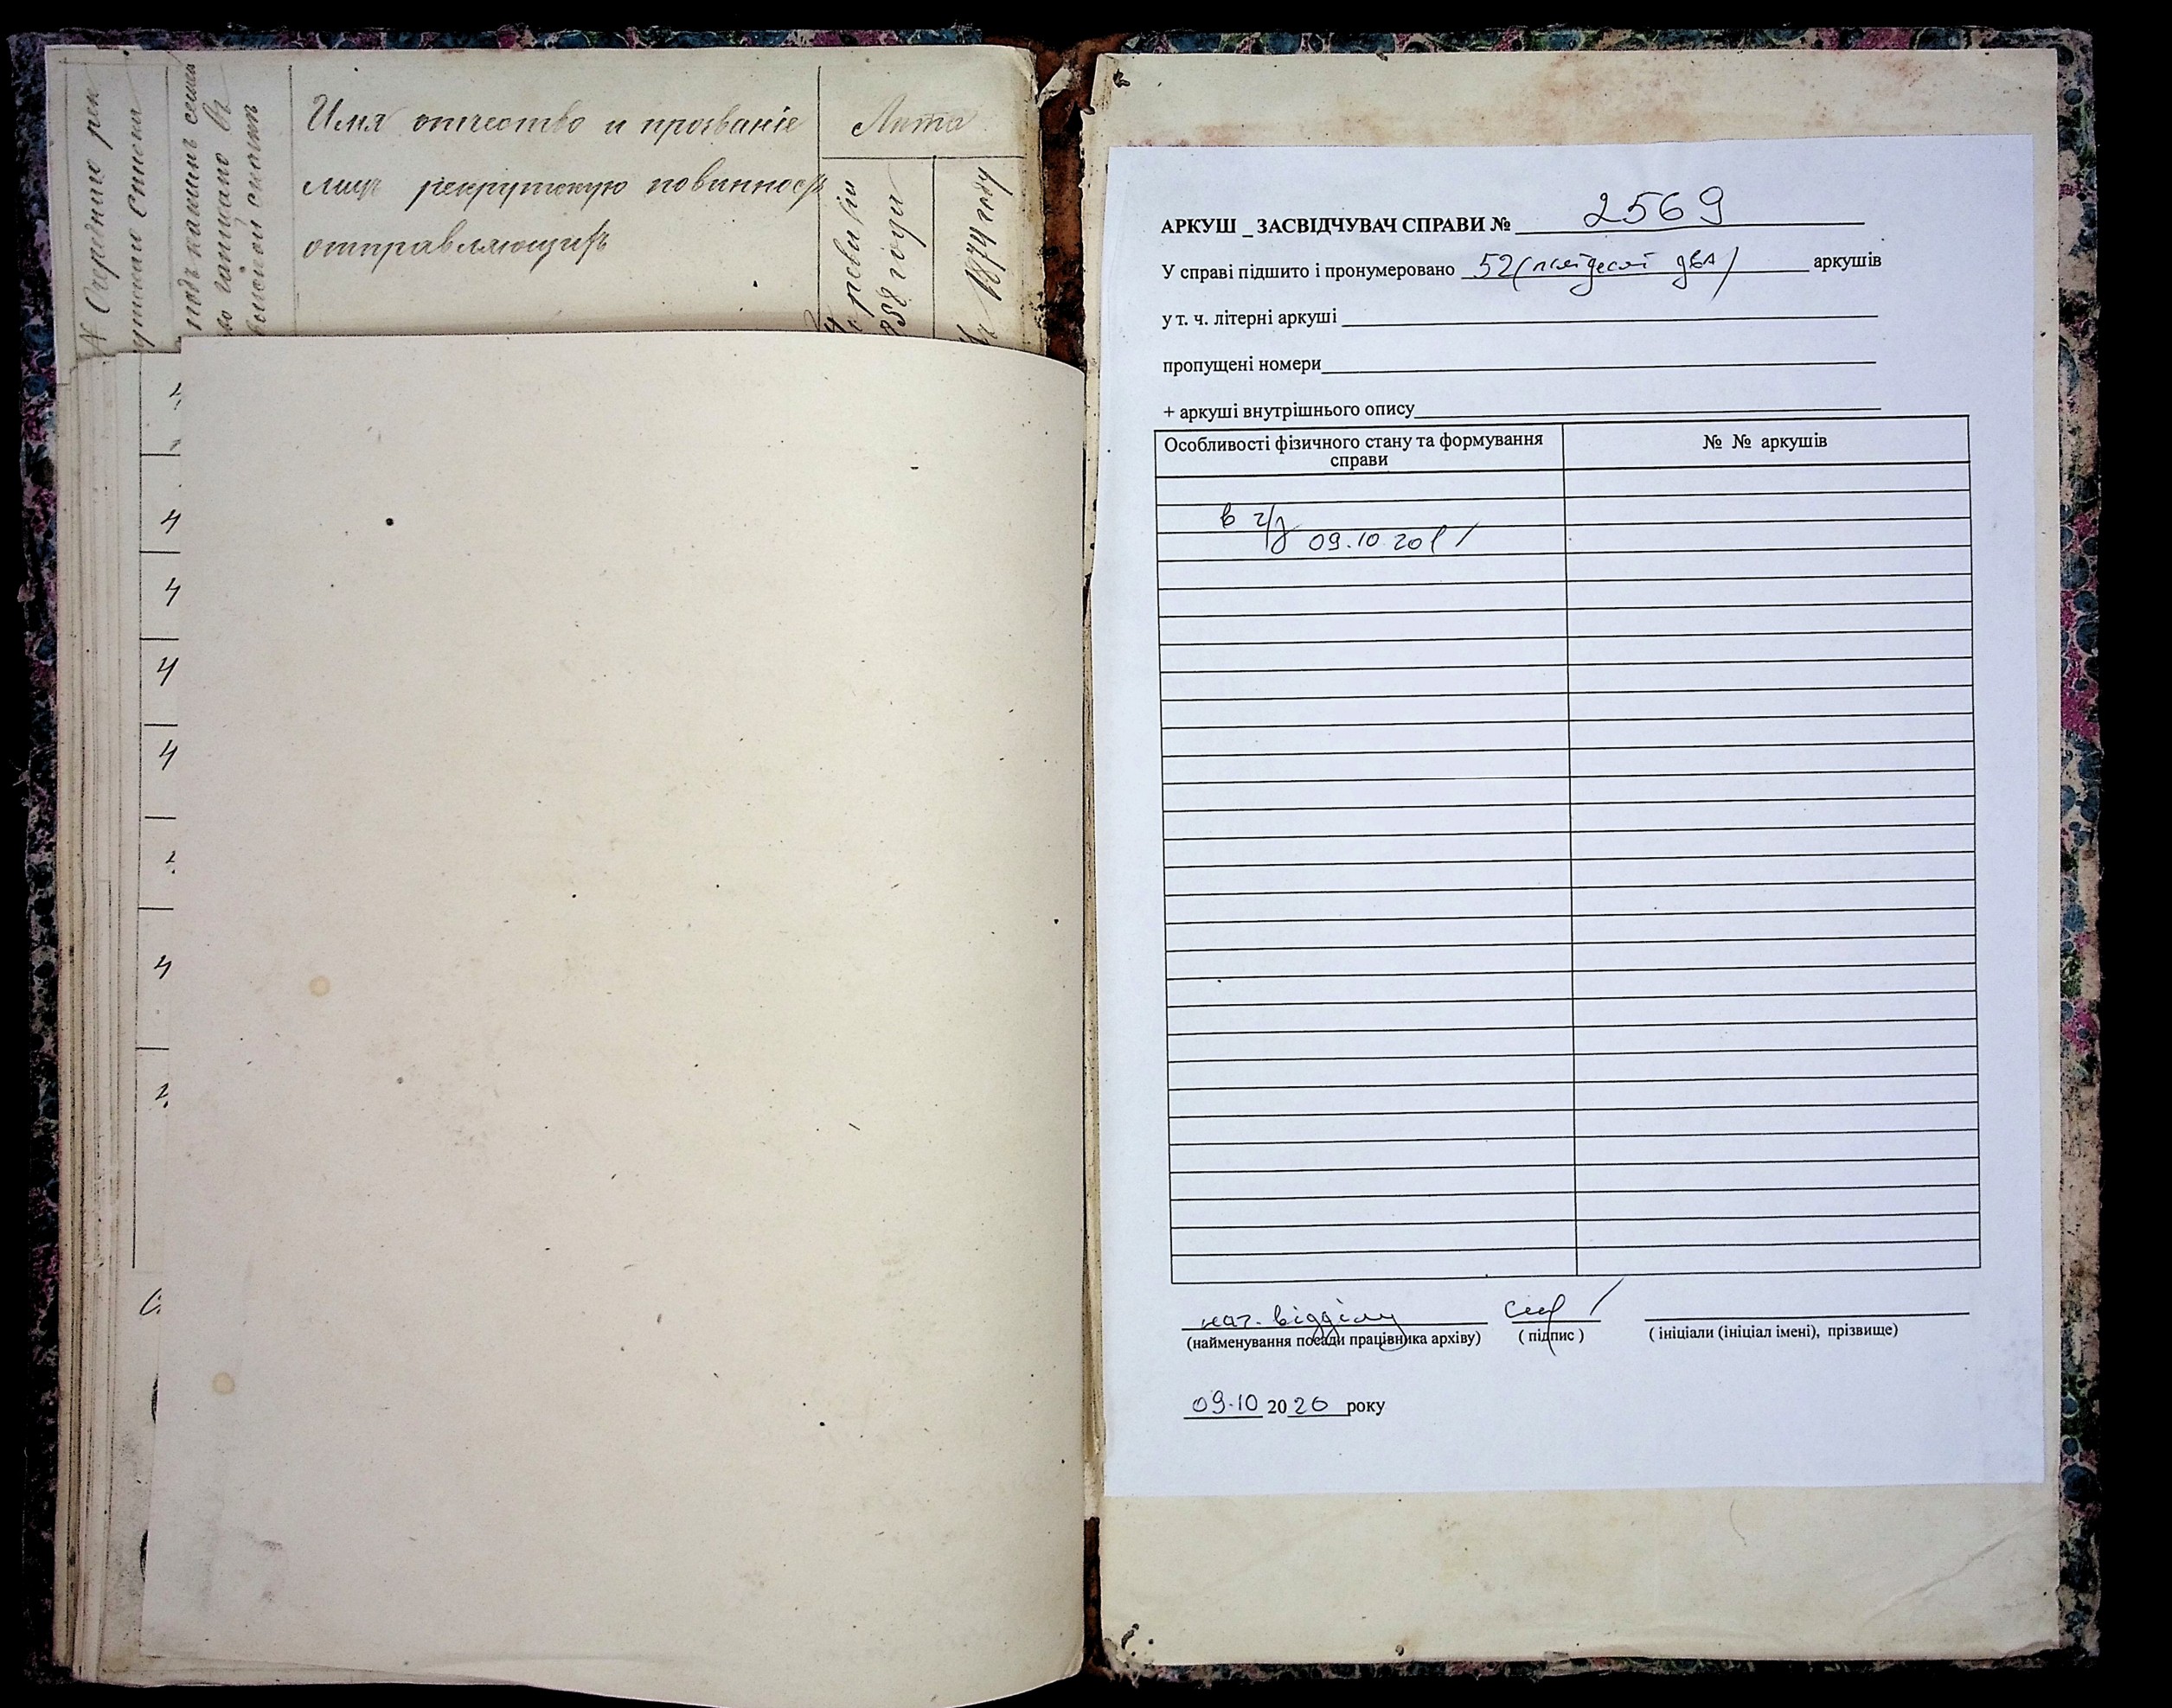 № Очередного рек
утскаго списка
подъ какимъ семе
записано въ
сказкѣ
Имя отчество и прозваніе
лицъ рекрутскую повинность
отправляющихъ
Лѣта
ревизіи
858 года
1874 году
АРКУШ _ ЗАСВІДЧУВАЧ СПРАВИ № 2569
У справі підшито і пронумеровано 52 (п'ятдесят два) аркушів
у т. ч. літерні аркуші
пропущені номери
+ аркуші внутрішнього опису
Особливості фізичного стану та формування
справи
№ № аркушів
в г/з
09.10.20
нач. відділу
(найменування посади працівника архіву) ( підпис ) ( ініціали (ініціал імені), прізвище)
09.10 2020 року